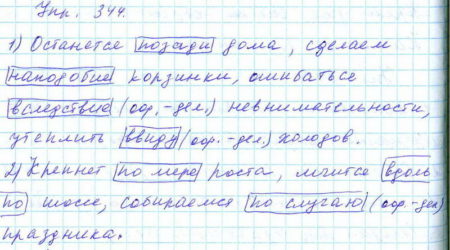 Упр. 344.
1) Останется позади дома, сделаем
наподобие корзинки, ошибаться
вследствие (оф.-дел.) невнимательности,
утеплить ввиду (оф.-дел.) холодов.
2) Крепнет по мере роста, мчится вдоль
по шоссе, собираемся по случаю (оф-дел)
праздника.